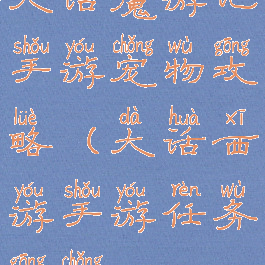 大话魔游记
shǒu yóu chǒng wù gōng
手游宠物攻
lüè dà huà xī
略（大话西
yóu shǒu yóu rèn wù
游手游任务
gōng chǒng